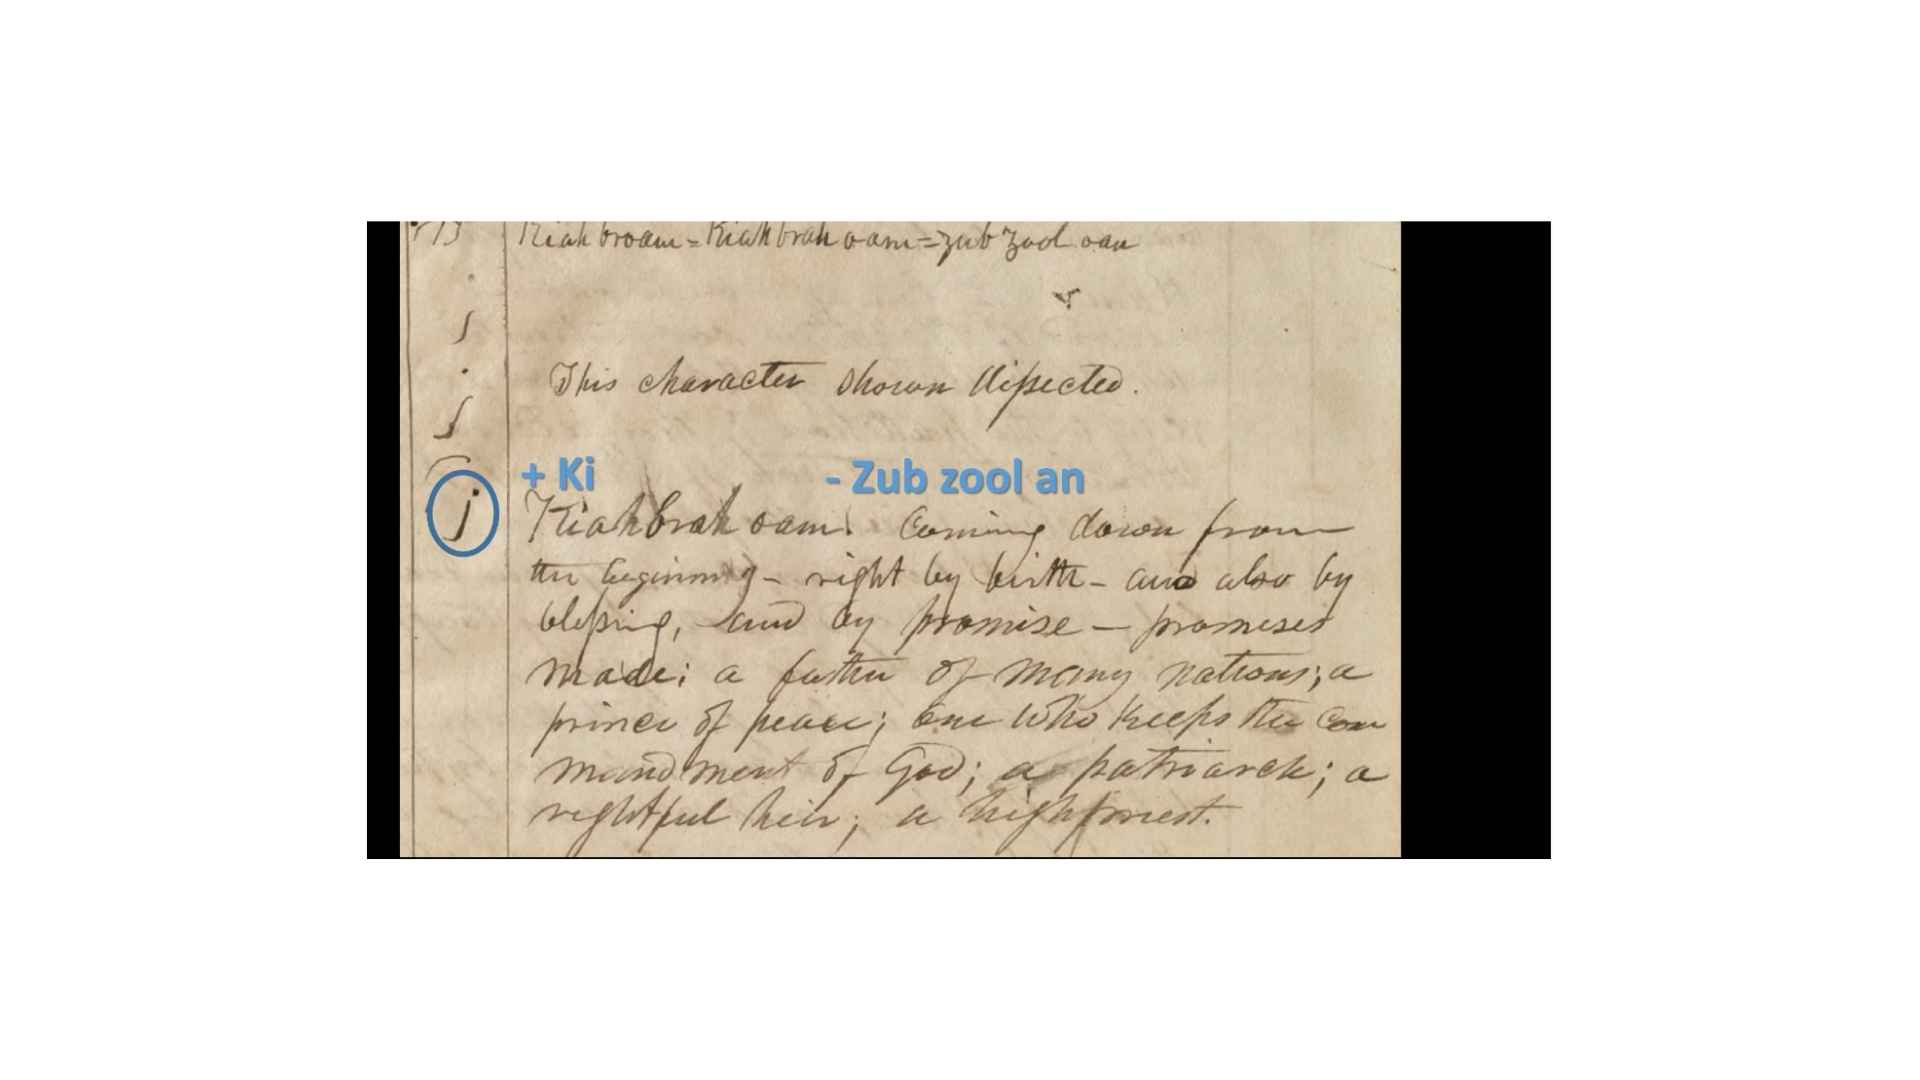 Kiah broam = Kiah brah oam = zub zool oan
This character shown dissected.
+ Ki - Zub zool an
j Kiah brah oam. Coming down from
the begining - right by birth - and also by
blessing, and by promise - promises
made; a father of many nations; a
prince of peace; one who keeps the com
mandment of God; a patriarch; a
rightful heir; a highpriest.